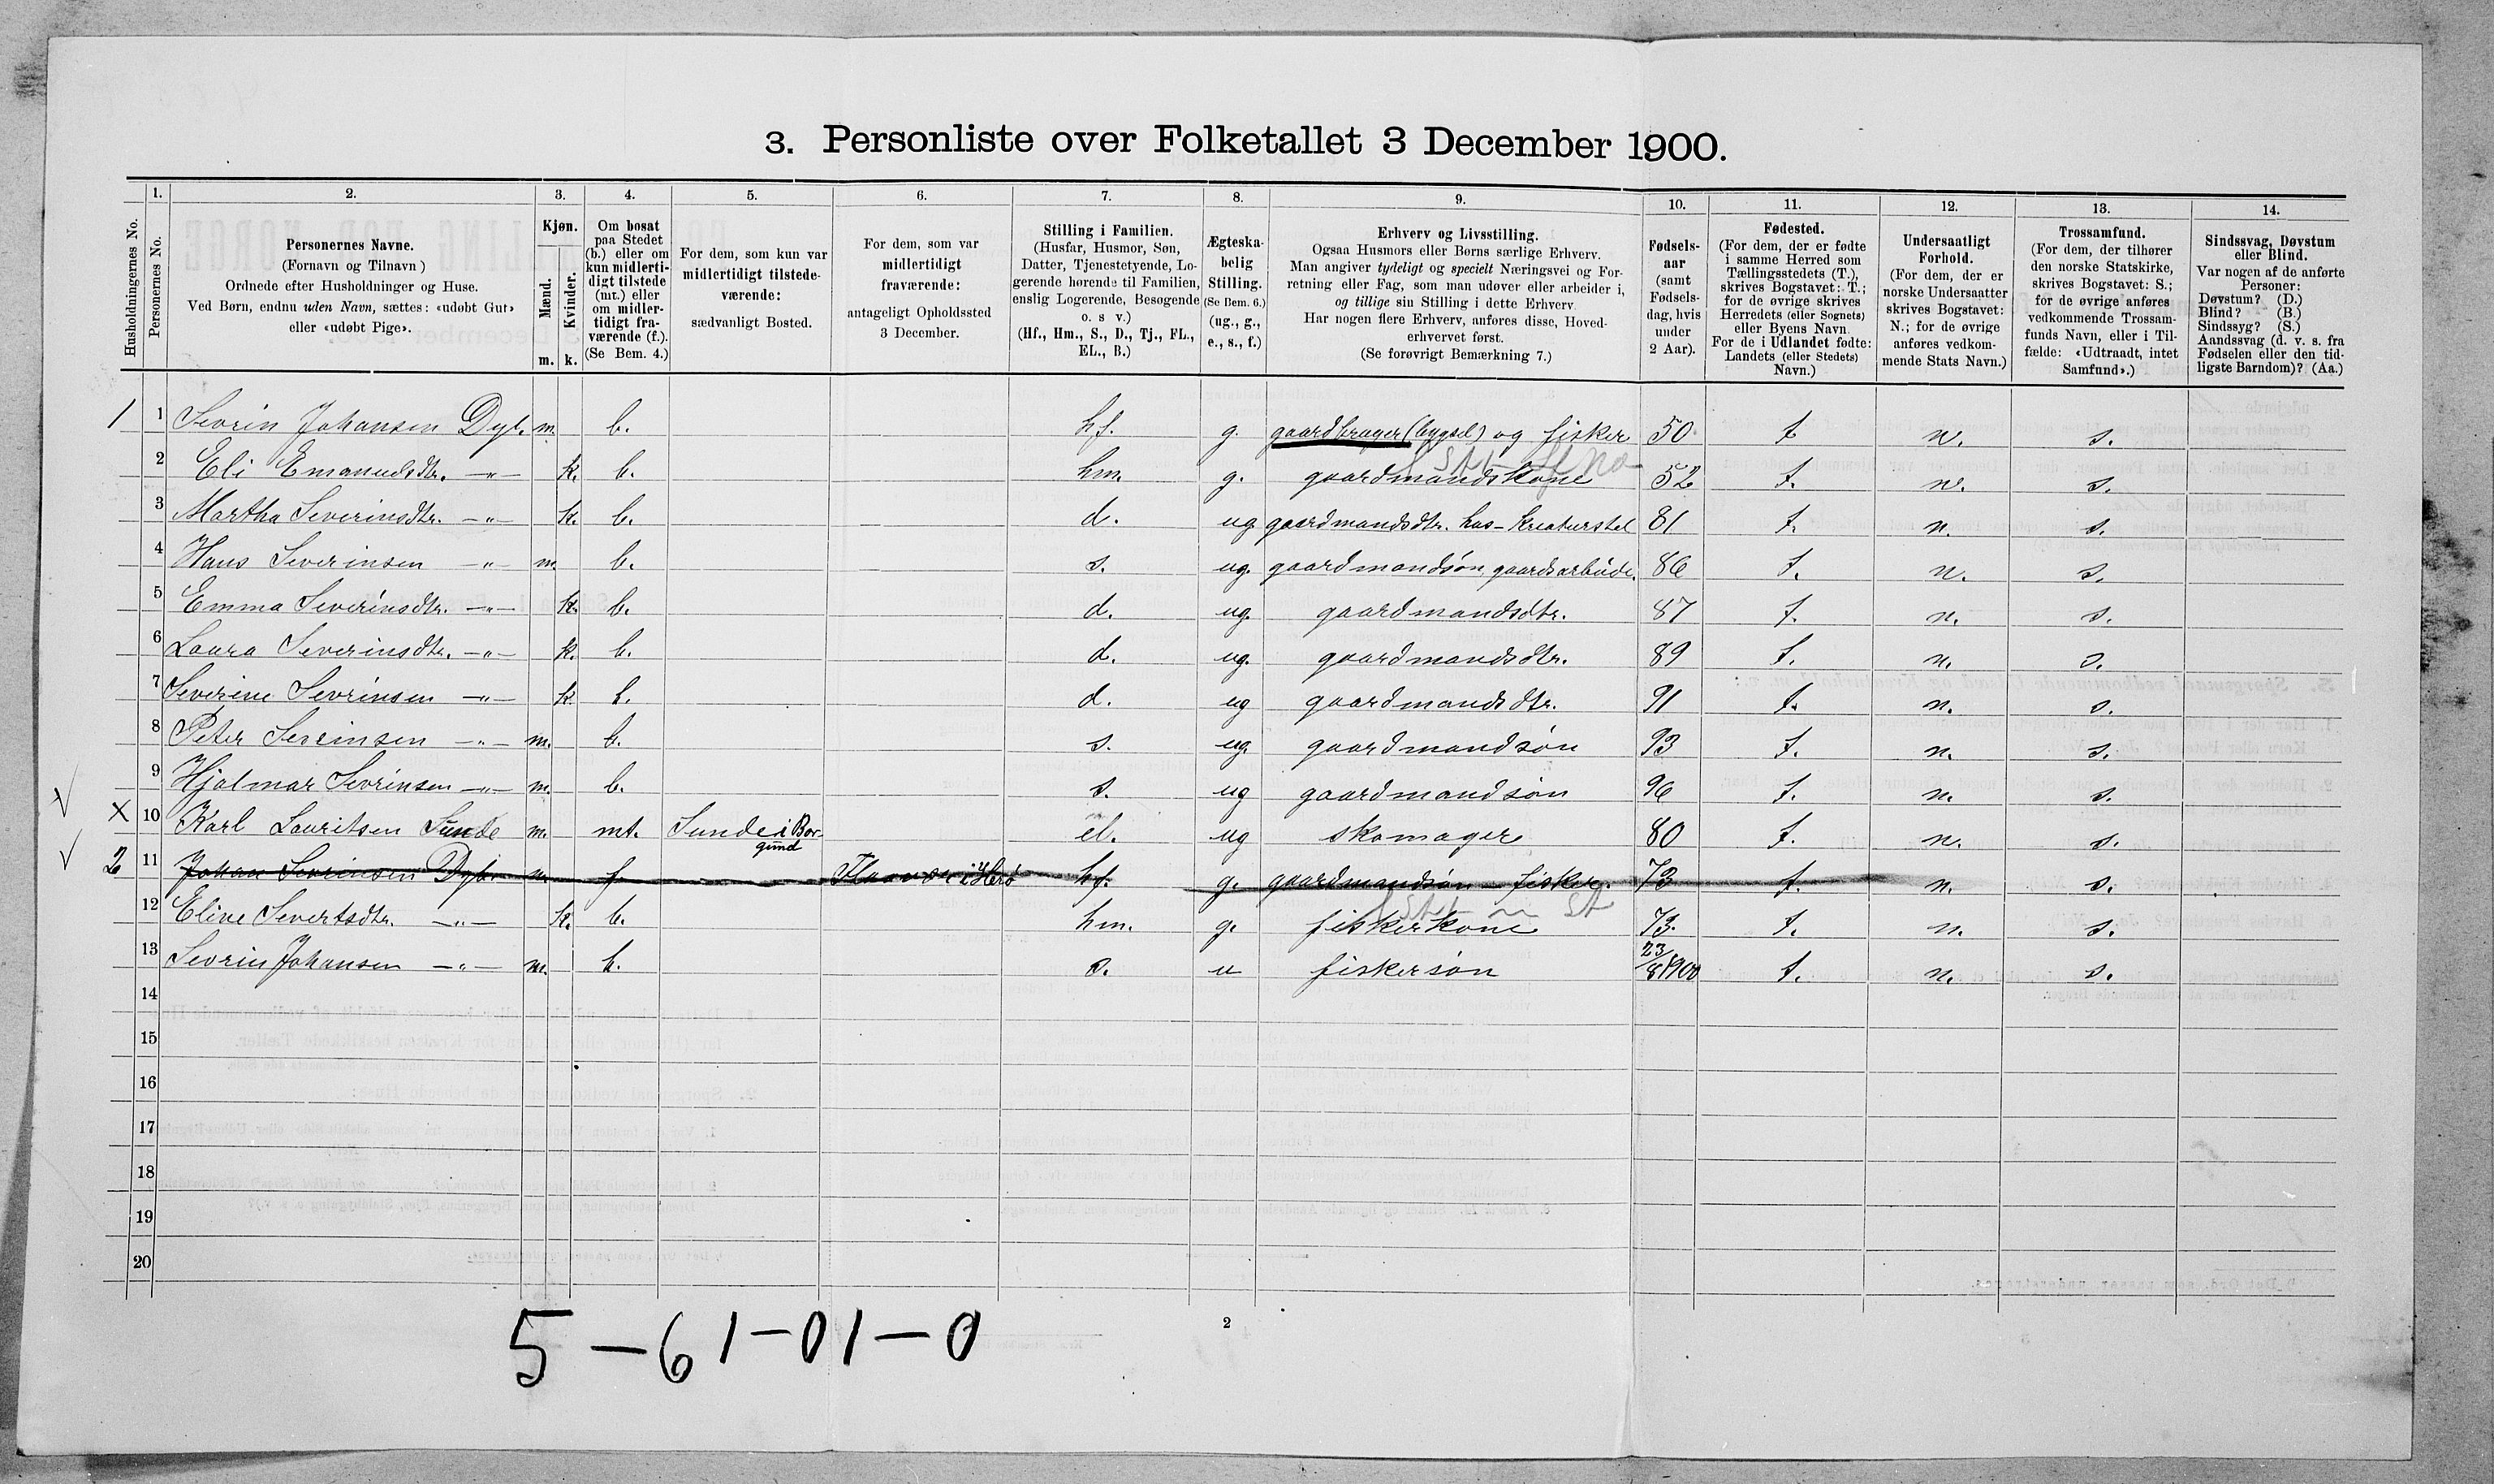 3. Personliste over Folketallet 3 December 1900.
Husholdningernes No.
1.
Personernes No.
2.
Personernes Navne.
(Fornavn og Tilnavn)
Ordnede efter Husholdninger og Huse.
Ved Børn, endnu uden Navn, sættes: «udøbt Gut»
eller «udøbt Pige».
3.
Kjøn.
Mænd.
Kvinder.
m. k.
4.
Om bosat
paa Stedet
(b.) eller om
kun midlerti-
digt tilstede
(mt.) eller
om midler-
tidigt fra-
værende (f.).
(Se Bem. 4.)
5.
For dem, som kun var
midlertidigt tilstede-
værende:
sædvanligt Bosted.
6.
For dem, som var
midlertidigt
fraværende:
antageligt Opholdssted
3 December.
7.
Stilling i Familien.
(Husfar, Husmor, Søn,
Datter, Tjenestetyende, Lo-
gerende hørende til Familien,
enslig Logerende, Besøgende
o. s v.)
(Hf., Hm., S., D., Tj., FL.,
EL., B.)
8.
Ægteska-
belig
Stilling.
(Se Bem. 6.)
(ug., g.,
e., s., f.)
9.
Erhverv og Livsstilling.
Ogsaa Husmors eller Børns særlige Erhverv.
Man angiver tydeligt og specielt Næringsvei og For-
retning eller Fag, som man udøver eller arbeider i,
og tillige sin Stilling i dette Erhverv.
Har nogen flere Erhverv, anføres disse, Hoved-
erhvervet først.
(Se forøvrigt Bemærkning 7.)
10.
Fødsels-
aar
(samt
Fødsels-
dag, hvis
under
2 Aar).
11.
Fødested.
(For dem, der er fødte
i samme Herred som
Tællingsstedets (T.),
skrives Bogstavet: T.;
for de øvrige skrives
Herredets (eller Sognets)
eller Byens Navn.
For de i Udlandet fødte:
Landets (eller Stedets)
Navn.)
12.
Undersaatligt
Forhold.
(For dem, der er
norske Undersaatter
skrives Bogstavet:
N.; for de øvrige
anføres vedkom-
mende Stats Navn.)
13.
Trossamfund.
(For dem, der tilhører
den norske Statskirke,
skrives Bogstavet: S.;
for de øvrige anføres
vedkommende Trossam-
funds Navn, eller i Til-
fælde: «Udtraadt, intet
Samfund».)
14.
Sindssvag, Døvstum
eller Blind.
Var nogen af de anførte
Personer:
Døvstum? (D.)
Blind? (B.)
Sindssyg? (S.)
Aandssvag (d. v. s. fra
Fødselen eller den tid-
ligste Barndom)? (Aa.)
1 1 Sevrin Johansen Dyb. m. b. hf. g. gaardbruger (bygsel) og fisker 50 t n. s.
2 Eli Emanuelsdtr. -"- k. b. hm. g. gaardmandskone 52 t. n. s.
3 Martha Severinsdtr. -"- k. b. d. ug gaardmandsdtr. hus-kreaturstel 81 t. n. s.
4 Hans Severinsen -"- m. b. s. ug. gaardmandsøn, gaardsarbeide. 86 t. n. s.
5 Emma Severinsdtr. -"- k. b. d. ug. gaardmandsdtr. 87 t. n. s.
6 Laura Severinsdtr. -"- k. b. d. ug. gaardmandsdtr. 89 t. n. s.
7 Severine Sevrinsen -"- k. b. d. ug gaardmandsdtr. 91 t. n. s.
8 Peter Sevrinsen -"- m. b. s. ug. gaardmandsøn 93 t. n. s.
9 Hjalmar Sevrinsen -"- m. b. s. ug gaardmandsøn 96 t. n. s.
X 10 Karl Lauritsen Sunde m. mt. Sunde i Bor-
gund el. ug skomager 80 t. n. s.
2 11 Johan Sevrinsen Dyb. m. f i Herø hf. g. gaardmandsøn fisker. 73 t. n. s.
12 Eline Severtsdtr. -"- k. b. hm. g. fiskerkone 73. t. n. s.
13 Sevrin Johansen -"- m. b. s. u fiskersøn 23/8 1900 t. n. s.
14
15
16
17
18
19
20
2
5-61-01-0